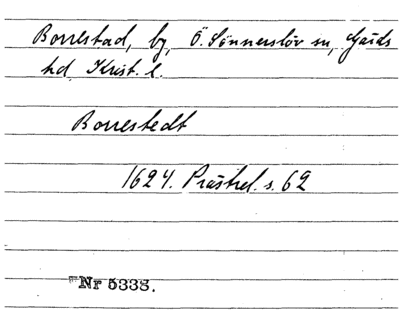 Borrestad, by, Ö. Sönnerslöv sn, Gärds
hd Krist. l.
Borrestedt
1624. Prästrel. s. 62
Nr 5338.